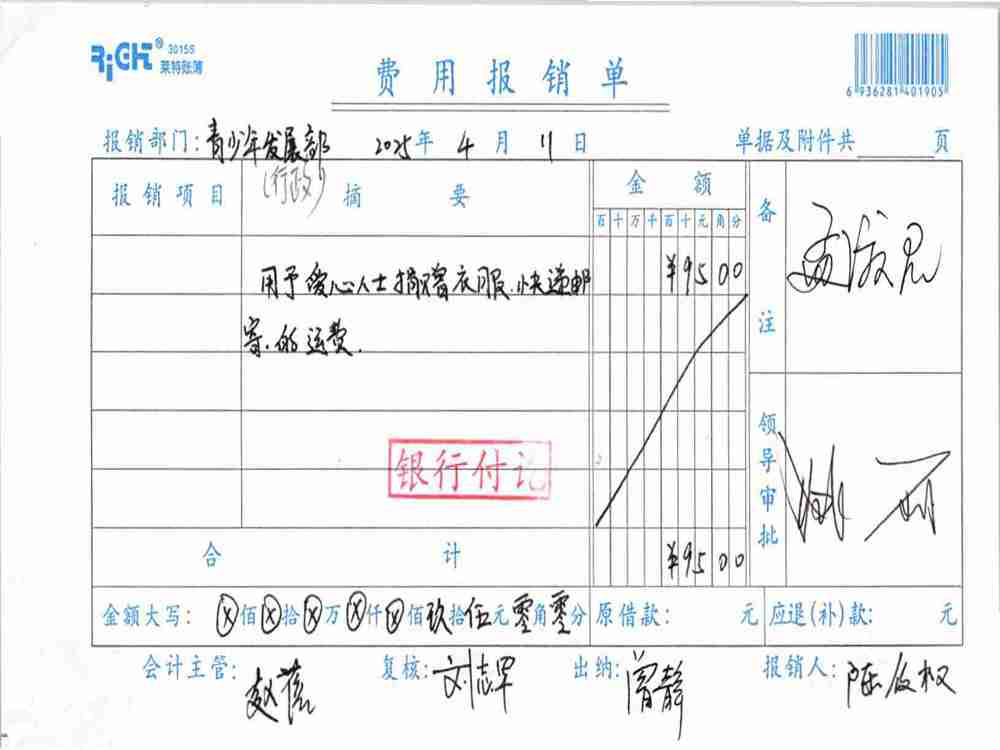 RiCHT® 3015S
莱特账簿
费用报销单
6 936281 401905
报销部门：青少年发展部 2025年 4月 11日 单据及附件共 页
(行政)
报销项目 摘要 金额 备注
百十万千百十元角分
用于爱心人士捐赠衣服.快递邮 ¥95 00
寄.的运费.
领导审批
银行付讫
合计 ¥95 00
金额大写：ⓧ佰ⓧ拾ⓧ万ⓧ仟ⓧ佰玖拾伍元零角零分 原借款： 元 应退(补)款： 元
会计主管： 复核：刘志罕 出纳：曾静 报销人：陈